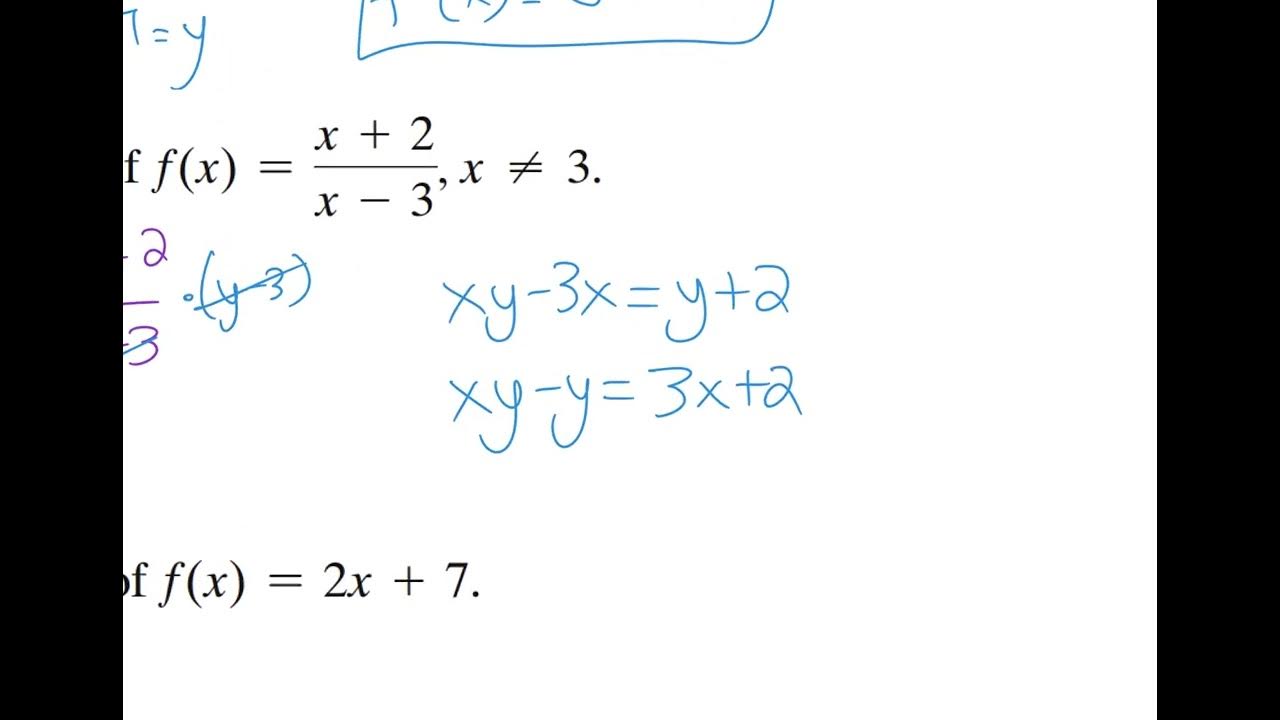 = y
f f(x) = \frac{x + 2}{x - 3}, x ≠ 3.
2
3 · (y-3)
xy-3x=y+2
xy-y=3x+2
of f(x) = 2x + 7.